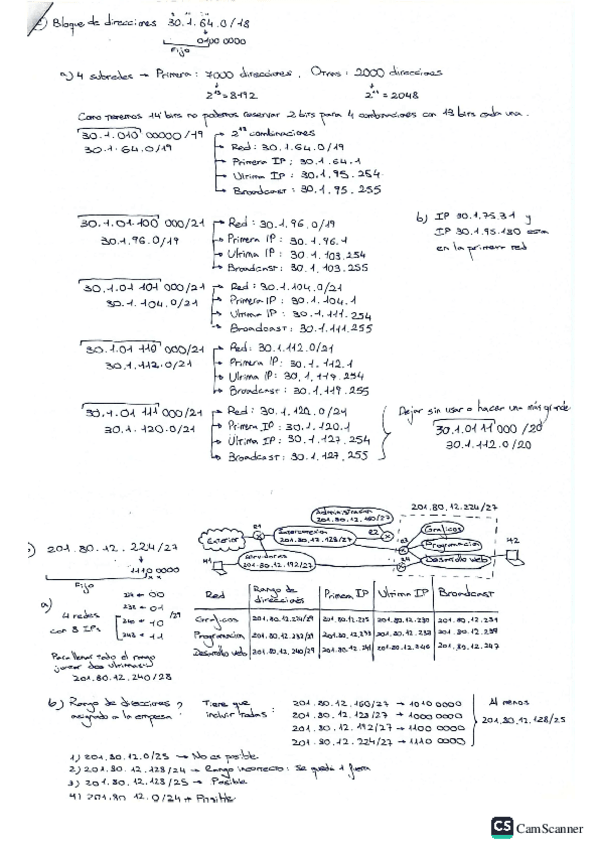 Bloque de direcciones 30.1.64.0/18
0100 0000
Fijo
a) 4 subredes → Primera: 7000 direcciones. Otras: 2000 direcciones
2^13 = 8192 2^11 = 2048
Como tenemos 14 bits no podemos reservar 2 bits para 4 combinaciones con 13 bits cada una.
30.1.010 00000/19 → 2^13 combinaciones
30.1.64.0/19 → Red: 30.1.64.0/19
→ Primera IP: 30.1.64.1
→ Ultima IP: 30.1.95.254
→ Broadcast: 30.1.95.255
30.1.01.100 000/21 → Red: 30.1.96.0/19
30.1.96.0/19 → Primera IP: 30.1.96.1
→ Ultima IP: 30.1.103.254
→ Broadcast: 30.1.103.255
b) IP 30.1.75.31 y
IP 30.1.95.180 estan
en la primera red
30.1.01 101 000/21 → Red: 30.1.104.0/21
30.1.104.0/21 → Primera IP: 30.1.104.1
→ Ultima IP: 30.1.111.254
→ Broadcast: 30.1.111.255
30.1.01 110 000/21 → Red: 30.1.112.0/21
30.1.112.0/21 → Primera IP: 30.1.112.1
→ Ultima IP: 30.1.119.254
→ Broadcast: 30.1.119.255
30.1.01 111 000/21 → Red: 30.1.120.0/21
30.1.120.0/21 → Primera IP: 30.1.120.1
→ Ultima IP: 30.1.127.254
→ Broadcast: 30.1.127.255
Dejar sin usar o hacer una más grande
30.1.01 11 000/20
30.1.112.0/20
201.80.12.224/27
1110 0000
Fijo
Administración
201.80.12.160/27
201.80.12.224/27
Exterior
R1
201.80.12.128/27
R2
R3
Gráficos
Programación
Desarrollo web
H2
H1
Servidores
201.80.12.192/27
R4
a)
4 redes
con 8 IPs
224 ← 00
232 ← 01
240 ← 10
248 ← 11
/29
Para llenar todo el rango
juntar dos ultimas:
201.80.12.240/28
Red Rango de direcciones Primera IP Ultima IP Broadcast
Gráficos 201.80.12.224/29 201.80.12.225 201.80.12.230 201.80.12.231
Programación 201.80.12.232/29 201.80.12.233 201.80.12.238 201.80.12.239
Desarrollo web 201.80.12.240/29 201.80.12.241 201.80.12.246 201.80.12.247
b) Rango de direcciones
asignado a la empresa?
Tiene que
incluir todas:
201.80.12.160/27 → 1010 0000
201.80.12.128/27 → 1000 0000
201.80.12.192/27 → 1100 0000
201.80.12.224/27 → 1110 0000
Al menos
201.80.12.128/25
1) 201.80.12.0/25 → No es posible
2) 201.80.12.128/24 → Rango incorrecto: Se queda 1 fuera
3) 201.80.12.128/25 → Posible
4) 201.80.12.0/24 → Posible
CS CamScanner